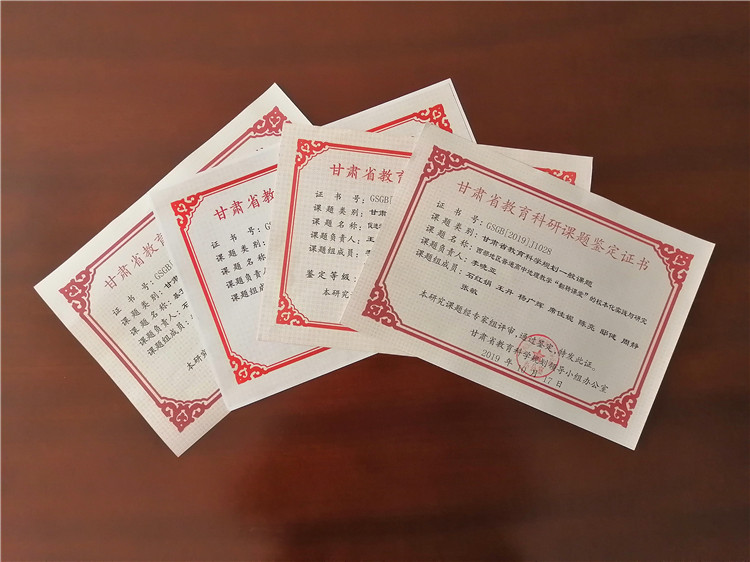 甘肃省教
证 书 号：GSGB[
课题类别：甘肃
课题名称：
课题负责人：石
课题组成员：
本研究
甘肃省教育
证 书 号：G
课题类别：
课题名称：
课题负责人：
课题组成员：
本研
甘肃省教
证 书 号：GSGB[
课题类别：甘肃
课题名称：促进
课题负责人：王
课题组成员：李
鉴定等级：
本研究
甘肃省教育科研课题鉴定证书
证 书 号：GSGB[2019]J1028
课题类别：甘肃省教育科学规划一般课题
课题名称：西部地区普通高中地理教学“翻转课堂”的校本化实践与研究
课题负责人：李晓亚
课题组成员：石红娟 王丹 杨广辉 席仕银 陈亮 郇健 周静
张敏
本研究课题经专家组评审，通过鉴定，特发此证。
甘肃省教育科学规划领导小组办公室
2019 年 10 月 17日